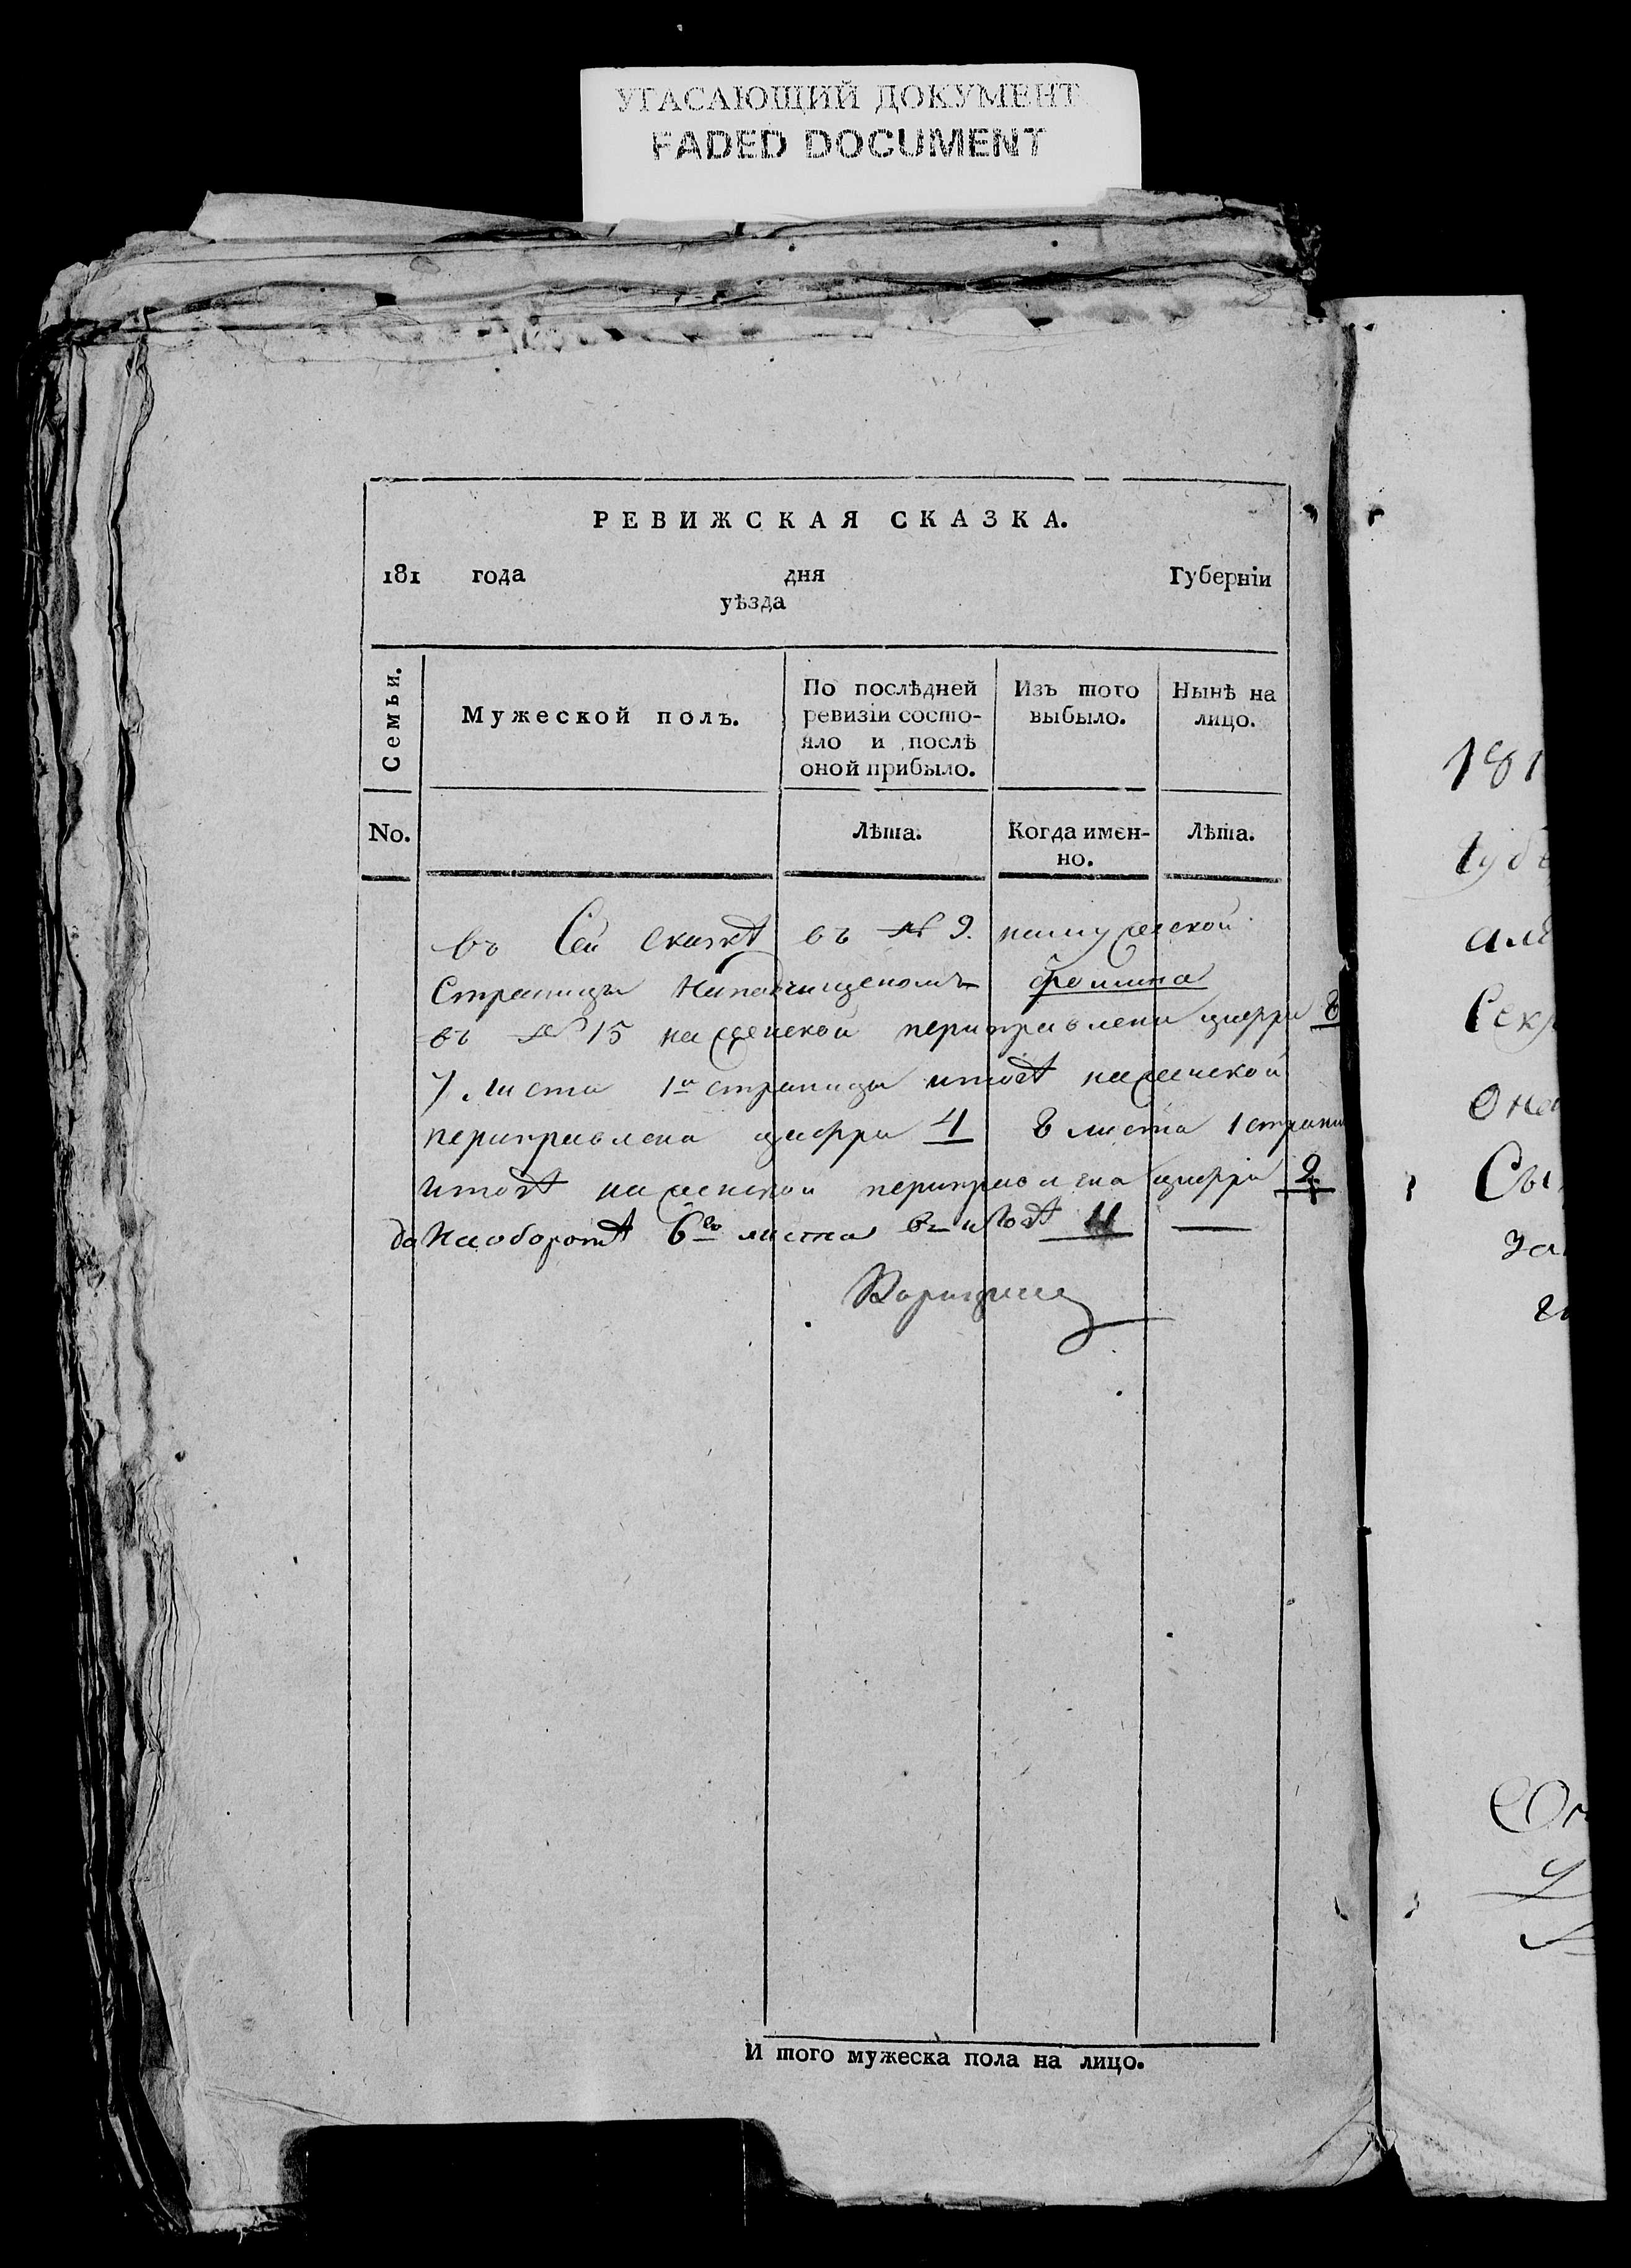 УГАСАЮЩИЙ ДОКУМЕНТ
FADED DOCUMENT
РЕВИЖСКАЯ СКАЗКА.
181 года дня Губерніи
уѣзда
Семьи.
Мужеской полъ.
По послѣдней
ревизіи состо-
яло и послѣ
оной прибыло.
Изъ того
выбыло.
Нынѣ на
лицо.
No.
Лѣта.
Когда имен-
но.
Лѣта.
въ Сей сказкѣ въ № 9. намужеской
страницы Наподчищеномъ фомина
въ № 15 на женской переправлена цыфра 8
7 листа 1й страницы итогѣ наженской
переправлена цыфра 4 8 листа 1 страни
итогѣ наженской переправлена цыфра 2
да Наоборотѣ 6го листа въ итогѣ 4
181
Губе
Секр
И того мужеска пола на лицо.